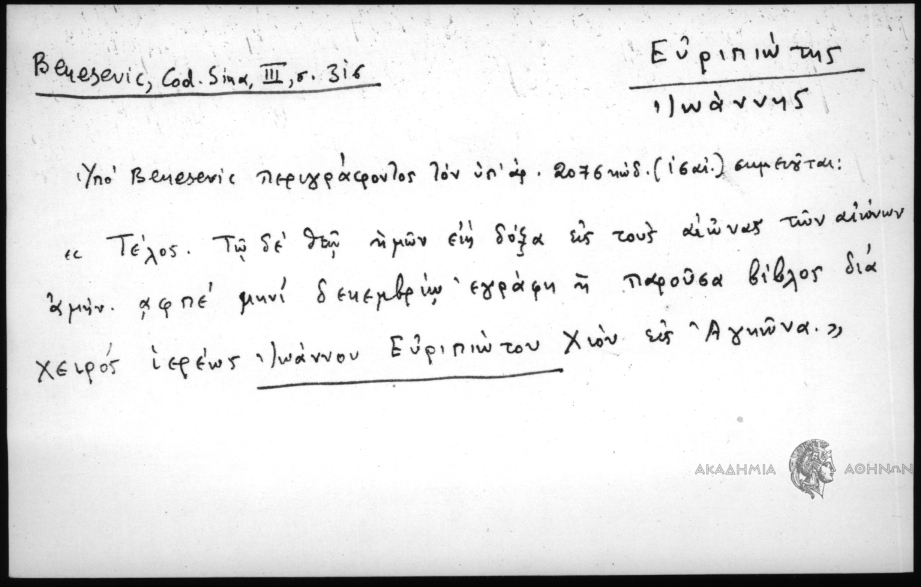 Benesevic, Cod. Sina, III, σ. 316
Εὐριπιώτης
Ἰωάννης
Ὑπό Benesevic περιγράφοντος τόν ὑπ' ἀρ. 2076 κώδ. (ις αἰ.) σημειοῦται:
« Τέλος. Τῷ δέ θεῷ ἡμῶν εἴη δόξα εἰς τούς αἰῶνας τῶν αἰώνων
ἀμήν. αφπέ μηνί δεκεμβρίῳ ἐγράφη ἡ παροῦσα βίβλος διά
χειρός ἱερέως Ἰωάννου Εὐριπιώτου Χιόν εἰς
ΑΚΑΔΗΜΙΑ ΑΘΗΝΩΝ